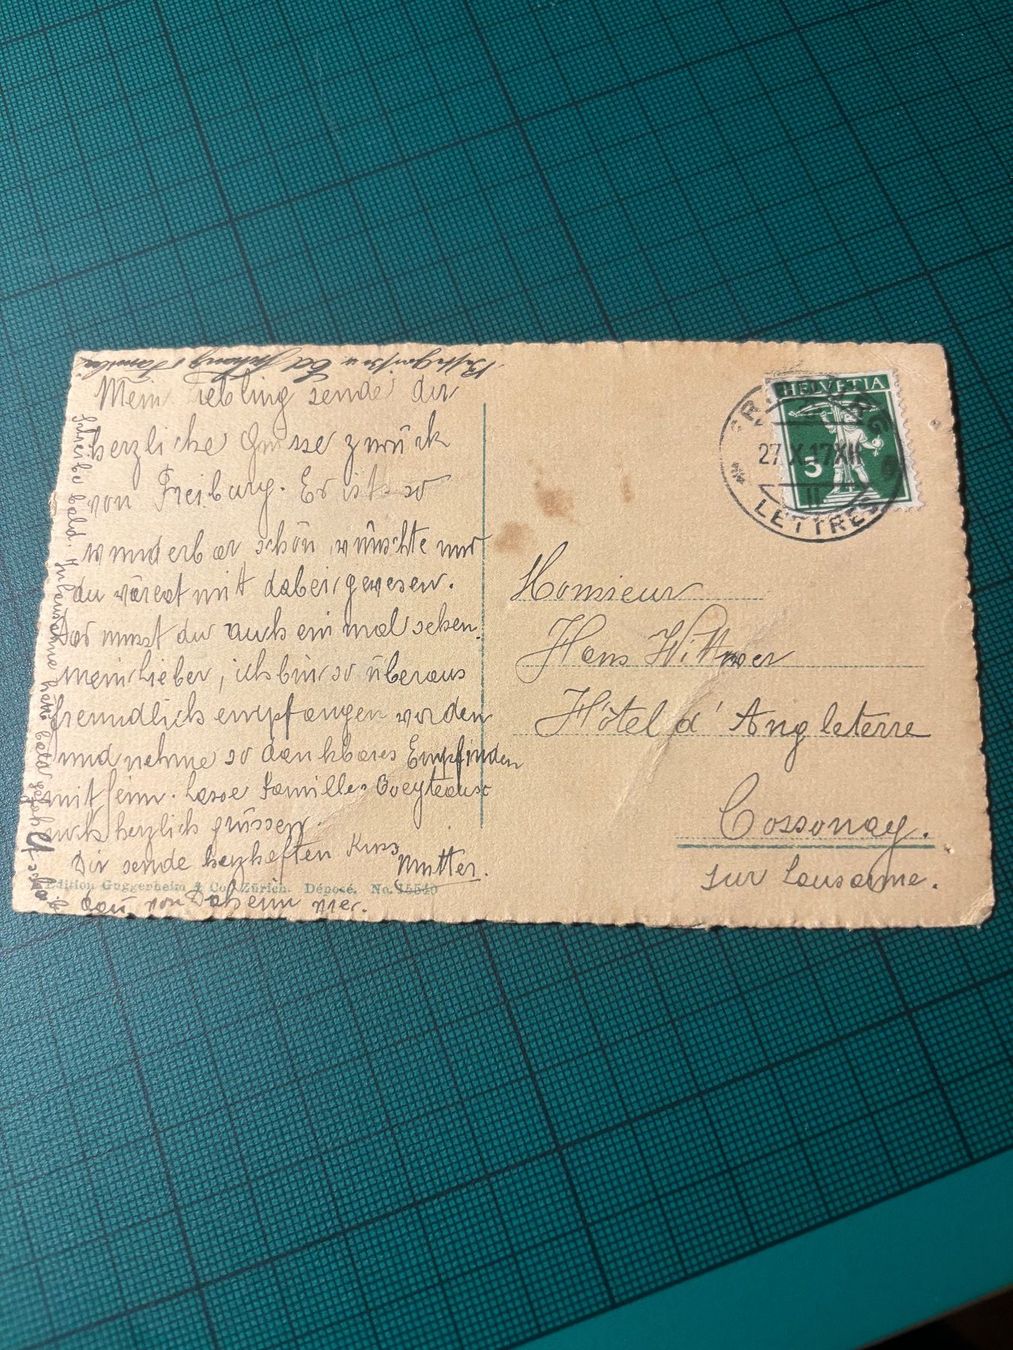 Mein Liebling sende dir
herzliche Grüsse zurück
von Freiburg. Es ist so
wunderbar schön, wünschte nur
du wärest mit dabei gewesen.
Das musst du auch einmal sehen.
mein Lieber, ich bin so überaus
freundlich empfangen worden
und nehme so dankbares Empfinden
mit heim. Lasse Famille
auch herzlich grüssen.
Dir sende herzhaften Kuss
Mutter.
von Daheim
schreibe bald.
Edition Guggenheim & Co., Zürich. Déposé. No. 15540
HELVETIA
5
FRIBOURG
27.X.17 XII
LETTRES
Monsieur
Hans
Hôtel d'Angleterre
Cossonay.
sur Lausanne.